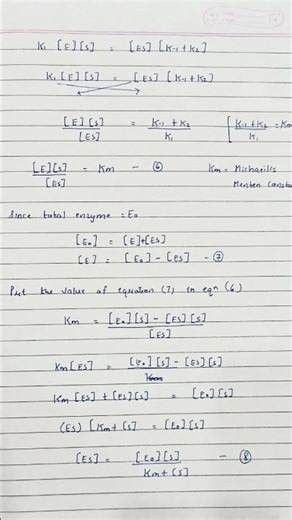 K₁ [E][S] = [ES] [K-1+K2]
K₁ [E][S] = [ES] [K-1+K2]
[E][S] / [ES] = K-1+K2 / K₁ [ K-1+K2 / K₁ = Km
[E][S] / [ES] = Km - ⑥ Km = Michaelis
Menten Constant
Since total enzyme = E₀
[E₀] = [E]+[ES]
[E] = [E₀] - [ES] - ⑦
Put the value of equation (7) in eqn (6)
Km = [E₀][S] - [ES][S] / [ES]
Km[ES] = [E₀][S] - [ES][S]
Km[ES] + [ES][S] = [E₀][S]
(ES) [Km+[S] = [E₀][S]
[ES] = [E₀][S] / Km+[S] - ⑧